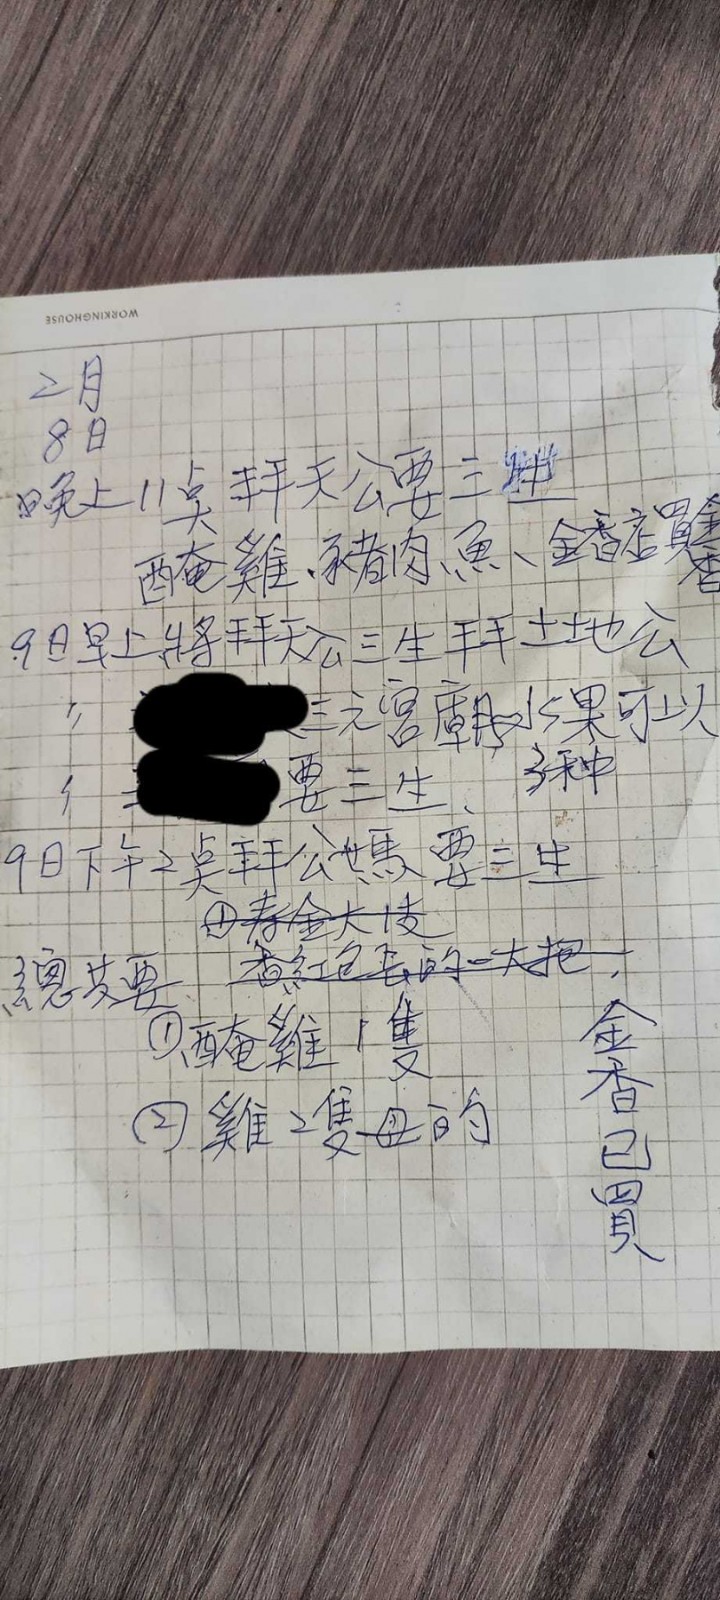 WORKINGHOUSE
2月
8日
晚上11点拜天公要三牲
醃雞、豬肉、魚、金香店買金香
9日早上將拜天公三生拜土地公
〃 三元宮廟 水果可以
3种
〃 要三生、
9日下午2点拜公媽要三生
①寿金大
香紅色長的一大把
總共要
①醃雞1隻
②雞2隻母的
金香已買